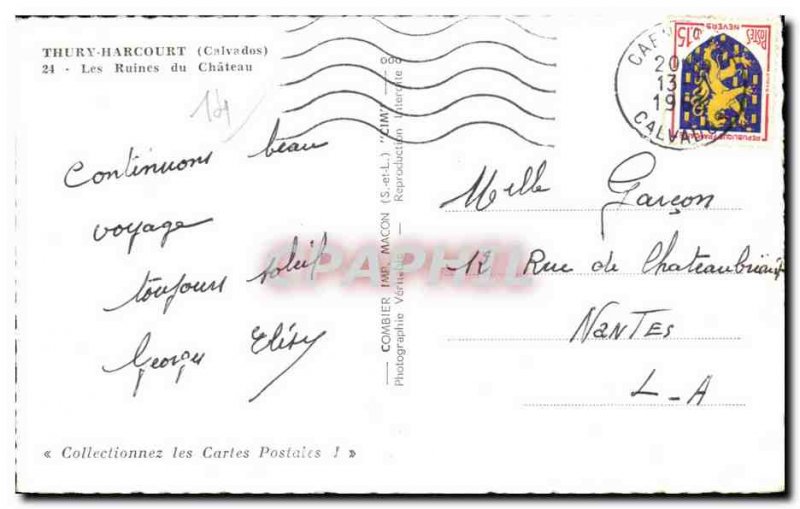 THURY-HARCOURT (Calvados)
24 - Les Ruines du Château
14
Continuons beau
voyage
toujours soleil
Georges
« Collectionnez les Cartes Postales ! »
COMBIER IMP. MACON (S.-et-L.) "CIM"
Photographie Véritable - Reproduction Interdite
CPAPHIL
0.15
POSTES
NEVERS
REPUBLIQUE FRANÇAISE
20
13
19
CALVAD
Melle Garçon
Rue de Chateaubriant
NANTES
L-A